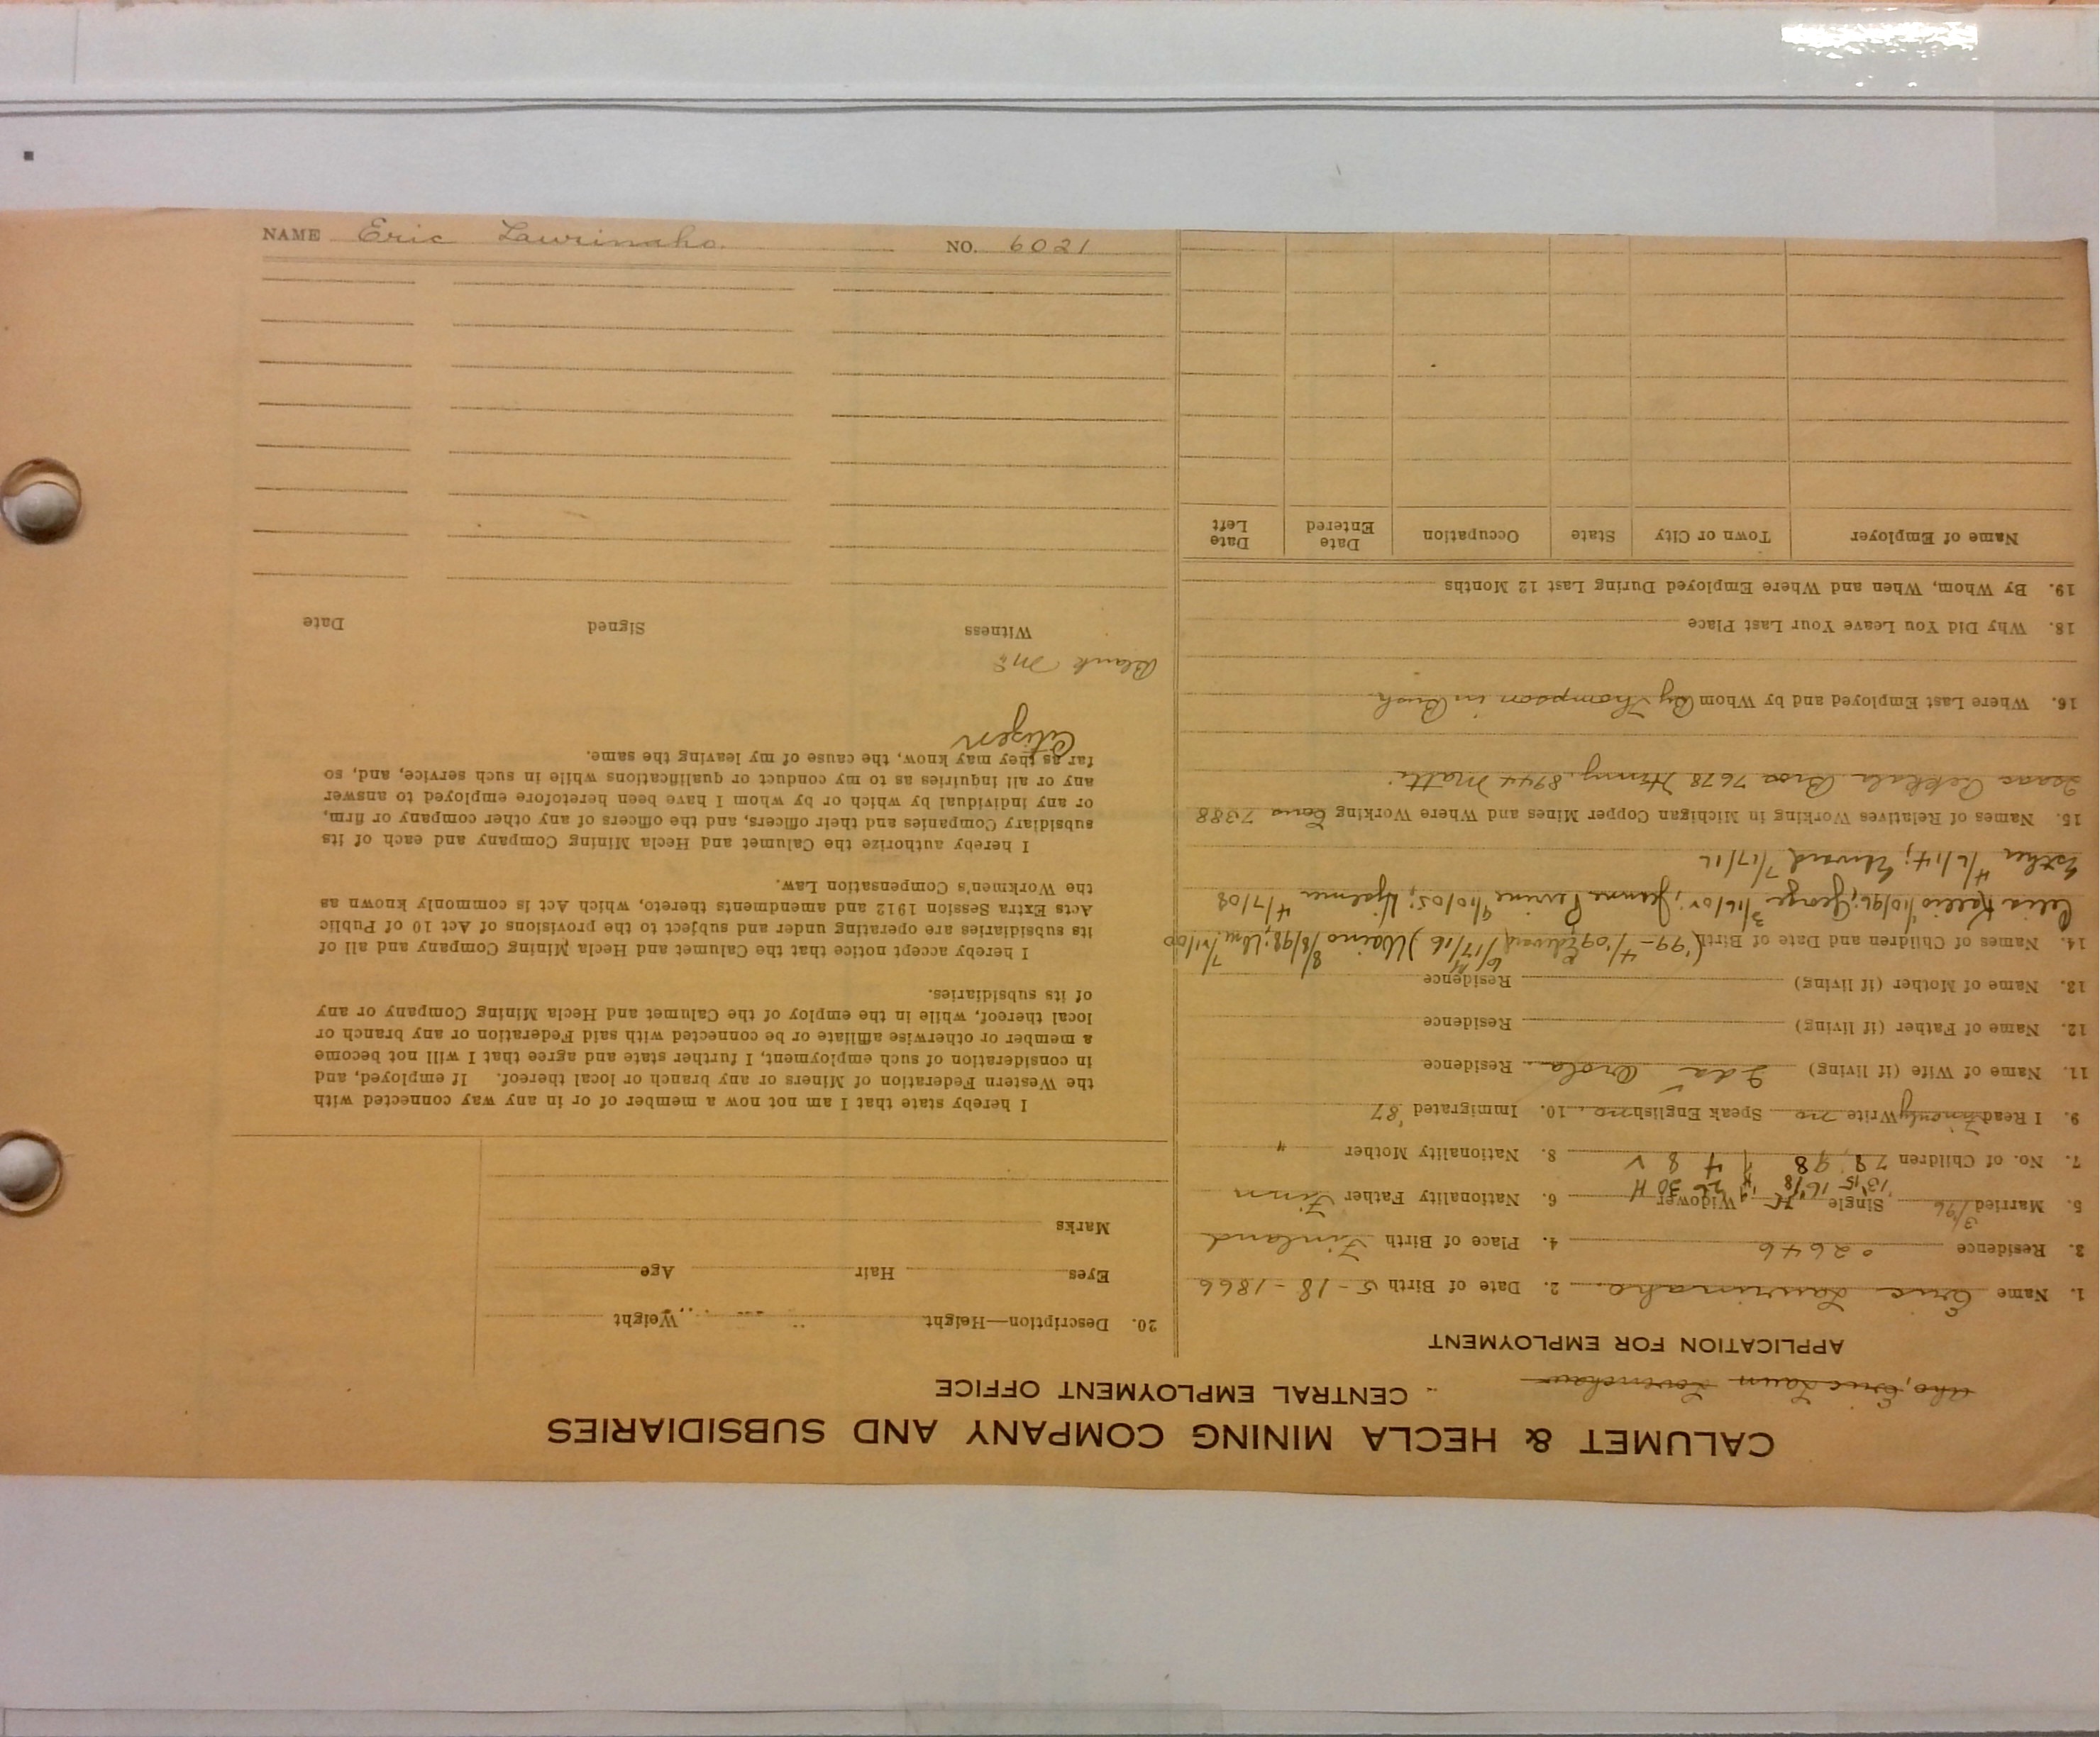 CALUMET & HECLA MINING COMPANY AND SUBSIDIARIES
Aho, Eric Laurn
CENTRAL EMPLOYMENT OFFICE
APPLICATION FOR EMPLOYMENT
1. Name Eric Laurinaho. 2. Date of Birth 5-18-1866
3. Residence 2646 4. Place of Birth Finland
5. Married 3/96 Single Widower 6. Nationality Father Finn
'13 '15 16 '18 26 30 H
7. No. of Children 7 8 9 8 7 8 8. Nationality Mother "
9. I Read Finn only Write no Speak English no 10. Immigrated '87
11. Name of Wife (if living) Ida Orola Residence
12. Name of Father (if living) Residence
13. Name of Mother (if living) Residence
14. Names of Children and Date of Birth ('99- 4/'09 Edward 7/17/16) Waino 8/8/98; 7/21/00
Celia Kallio 9/10/96; George 3/16/02; Jenna 9/10/05; Hjalmer 4/7/08
Esther 4/6/14; Edward 7/17/16
15. Names of Relatives Working in Michigan Copper Mines and Where Working 7388
Isaac Pekkala Bros 7678 Henry, 8744 Matti.
16. Where Last Employed and by Whom By Thompson in Bush
18. Why Did You Leave Your Last Place
19. By Whom, When and Where Employed During Last 12 Months
Name of Employer Town or City State Occupation Date Entered Date Left
20. Description—Height Weight
Eyes Hair Age
Marks
I hereby state that I am not now a member of or in any way connected with
the Western Federation of Miners or any branch or local thereof. If employed, and
in consideration of such employment, I further state and agree that I will not become
a member or otherwise affiliate or be connected with said Federation or any branch or
local thereof, while in the employ of the Calumet and Hecla Mining Company or any
of its subsidiaries.
I hereby accept notice that the Calumet and Hecla Mining Company and all of
its subsidiaries are operating under and subject to the provisions of Act 10 of Public
Acts Extra Session 1912 and amendments thereto, which Act is commonly known as
the Workmen's Compensation Law.
I hereby authorize the Calumet and Hecla Mining Company and each of its
subsidiary Companies and their officers, and the officers of any other company or firm,
or any individual by which or by whom I have been heretofore employed to answer
any or all inquiries as to my conduct or qualifications while in such service, and, so
far as they may know, the cause of my leaving the same.
Citizen
Blank
Witness Signed Date
NAME Eric Laurinaho. NO. 6021